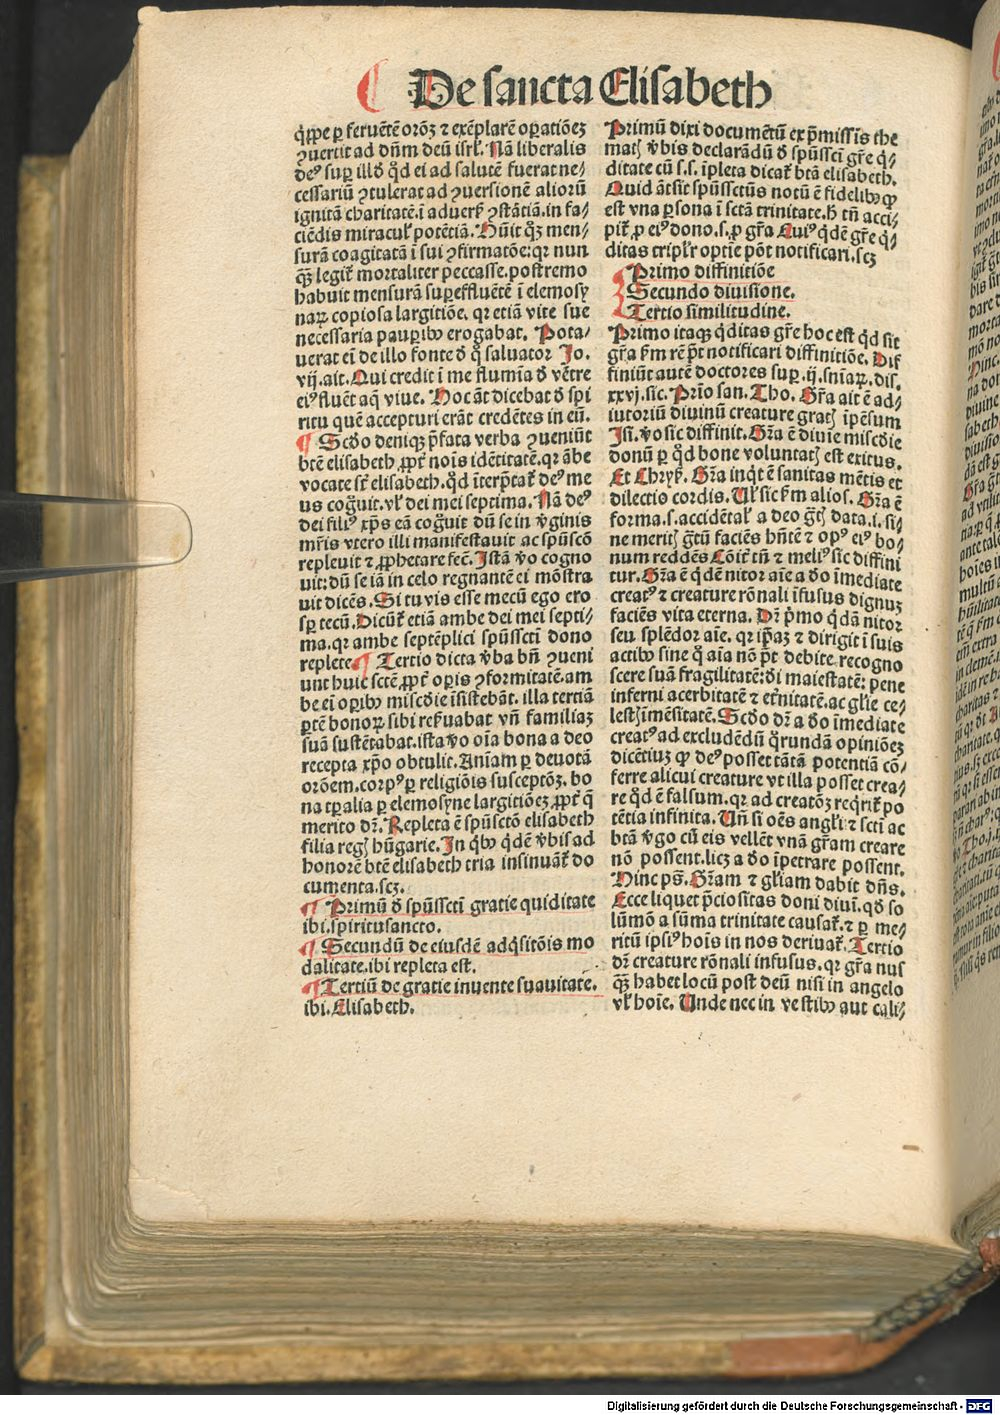 De sancta Elisabeth
q̄ppe ꝑ feruētē orōȝ ⁊ exēplarē oꝑationēȝ
ꝯuertit ad dn̄m deū isrl̓. Nā liberalis
deꝰ suꝑ illū qd̓ ei ad salutē fuerat ne⸗
cessariū ꝯtulerat ad ꝯuersionē alioꝝ
ignitā charitatē. ī aduers̓ ꝯstātiā. in fa⸗
ciēdis miracul̓ potētiā. Hūit qȝ men⸗
surā coagitatā ī sui ꝯfirmatōe: qꝛ nun
qȝ̄ legit̓ mortaliter peccasse. postremo
habuit mensurā suꝑeffluētē ī elemosy
naꝝ copiosa largitiōe. qꝛ etiā vite sue
necessaria pauꝑibꝰ erogabat. Pota⸗
uerat eī de illo fonte ď q̊ saluator Jo.
vij. ait. Qui credit ī me flumīa ď vētre
eiꝰ fluēt aq̄ viue. Hoc āt dicebat ď spi
ritu quē accepturi erāt credētes in eū.
¶ Scďo deniqȝ p̄fata verba ꝯueniūt
btē elisabeth ꝓpt̓ noīs idētitatē. qꝛ ābe
vocate sr̄t elisabeth. qd̓ īterp̄tat̓ deꝰ me
us cogͦuit. vl̓ dei mei septima. Nā deꝰ
dei filiꝰ xp̄s eā cogͦuit dū se in ꝟginis
mr̄is vtero illi manifestauit ac spūscō
repleuit ⁊ ꝓphetare fec̄. Istā ꝟo cogno
uit: dū se iā in celo regnantē ei mōstra
uit dicēs. Si tu vis esse mecū ego ero
sꝑ tecū. Dicūt̓ etiā ambe dei mei septi⸗
ma. qꝛ ambe septēplici spūsscti dono
replete ¶ Tertio dicta ꝟba bn̄ ꝯueni
unt huic sctē ꝓpt̓ oꝑis ꝯformitatē. am
be eī oꝑibꝰ miscďie īsistebāt. illa tertiā
ꝑtē bonoꝝ sibi res̓uabat vn̄ familiāȝ
suā sustētabat. ista ꝟo oīa bona a deo
recepta xp̄o obtulit. Aniam ꝑ deuotā
orōem. corpꝰ ꝑ religiōis susceptōȝ. bo
na tꝑalia ꝑ elemosyne largitiōeȝ. ꝓpt̓ q̄
merito dr̄. Repleta ē spūsctō elisabeth
filia regꝭ hūgarie. In qͥbꝰ qͥdē ꝟbis ad
honorē btē elisabeth tria insinuāt̓ do
cumenta. scȝ.
¶ Primū ď spūssctī gratie quiditate
ibi. spiritusancto.
¶ Secundū de eiusdē adqͥsitōis mo
dalitate. ibi repleta est.
¶ Tertiū de gratie inuente suauitate.
ibi. Elisabeth.
Primū dixi documētū ex p̄missis the
matꝭ ꝟbis declarādū ď spūssctī gr̄e qͥ⸗
ditate cū s.s. īpleta dicat̓ btā elisabeth.
Quid āt sit spūssctūs notū ē fidelibꝰ qꝫ
est vna ꝑsona ī sctā trinitate. h̓ tn̄ acci⸗
pit̓ ꝓ eiꝰ dono. s. ꝓ gr̄a Cuiꝰ qͥdē gr̄e qͥ⸗
ditas tripl̓r optīe pōt notificari. scȝ
Primo diffinitiōe
Secundo diuisione.
Tertio similitudine.
Primo itaqȝ qͥditas gr̄e hoc est qͥd sit
gr̄a ẜm rē pt̄ notificari diffinitiōe. Dif
finiūt autē doctores suꝑ .ij. snīaꝝ. dis.
xxvj. sic. Prīo san. Tho. Gr̄a ait ē ad⸗
iutoriū diuinū creature gratꝭ īpēsum
Isi. ꝟo sic diffinit. Gr̄a ē diuīe miscďie
donū ꝑ qd̓ bone voluntatꝭ est exitus.
Et Chrys̓. Gr̄a inqͥt ē sanitas mētis et
dilectio cordis. Ul̓ sic ẜm alios. Gr̄a ē
forma. s. accidētal̓ a deo gͣtꝭ data. i. si⸗
ne meritꝭ gͣtū faciēs hn̄tē ⁊ opꝰ eiꝰ bo⸗
num reddēs Cōit̓ tn̄ ⁊ meliꝰ sic diffini
tur. Gr̄a ē qͥdē nitor aīe a ďo īmediate
creatꝰ ⁊ creature rōnali īfusus dignuȝ
faciēs vita eterna. Dr̄ pͥmo qͥdā nitor
seu splēdor aīe. qꝛ ip̄aȝ ⁊ dirigit ī suis
actibꝰ sine qͣ aīa nō pt̄ debite recogno
scere suā fragilitatē: di maiestatē: pene
inferni acerbitatē ⁊ et̓nitatē. ac gl̓ie ce⸗
lestꝭ īmēsitatē. Scďo dr̄ a ďo īmediate
creatꝰ ad excludēdū qͦrundā opiniōeȝ
dicētiuȝ qꝫ deꝰ posset tātā potentiā cō⸗
ferre alicui creature vt illa posset crea⸗
re qd̓ ē falsum. qꝛ ad creatōȝ reqͥrit̓ po
tētia infinita. Un̄ si oēs angl̓i ⁊ scti ac
btā ꝟgo cū eis vellēt vnā gr̄am creare
nō possent. licȝ a ďo īpetrare possent.
Hinc ps̄. Gr̄am ⁊ gl̓iam dabit dn̄s.
Ecce liquet p̄ciositas doni diuī. qd̓ so
lūmō a sūma trinitate causat̓. ⁊ ꝑ me⸗
ritū ipsiꝰ hoīs in nos deriuat̓. Tertio
dr̄ creature rōnali infusus. qꝛ gr̄a nus
qȝ̄ habet locū post deū nisi in angelo
vl̓ hoīe. Unde nec in vestibꝰ aut cali⸗
Digitalisierung gefördert durch die Deutsche Forschungsgemeinschaft - DFG